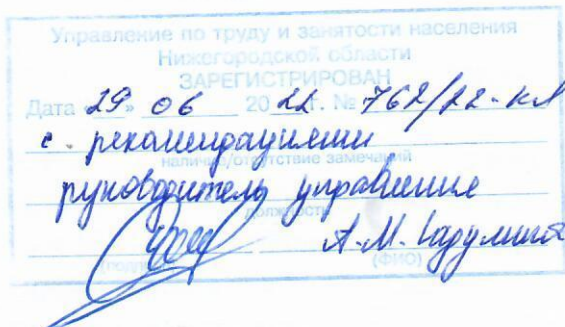 Управление по труду и занятости населения
Нижегородской области
ЗАРЕГИСТРИРОВАН
Дата «29» 06 2022 г. № 762/22-кд
с рекомендациями
наличие/отсутствие замечаний
руководитель управления
должность
А.М.
(подпись) (ФИО)